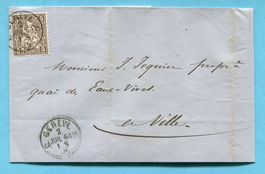 Monsieur J. Jequier propre
quai de Eaux-Vives
en Ville.
GENEVE
2